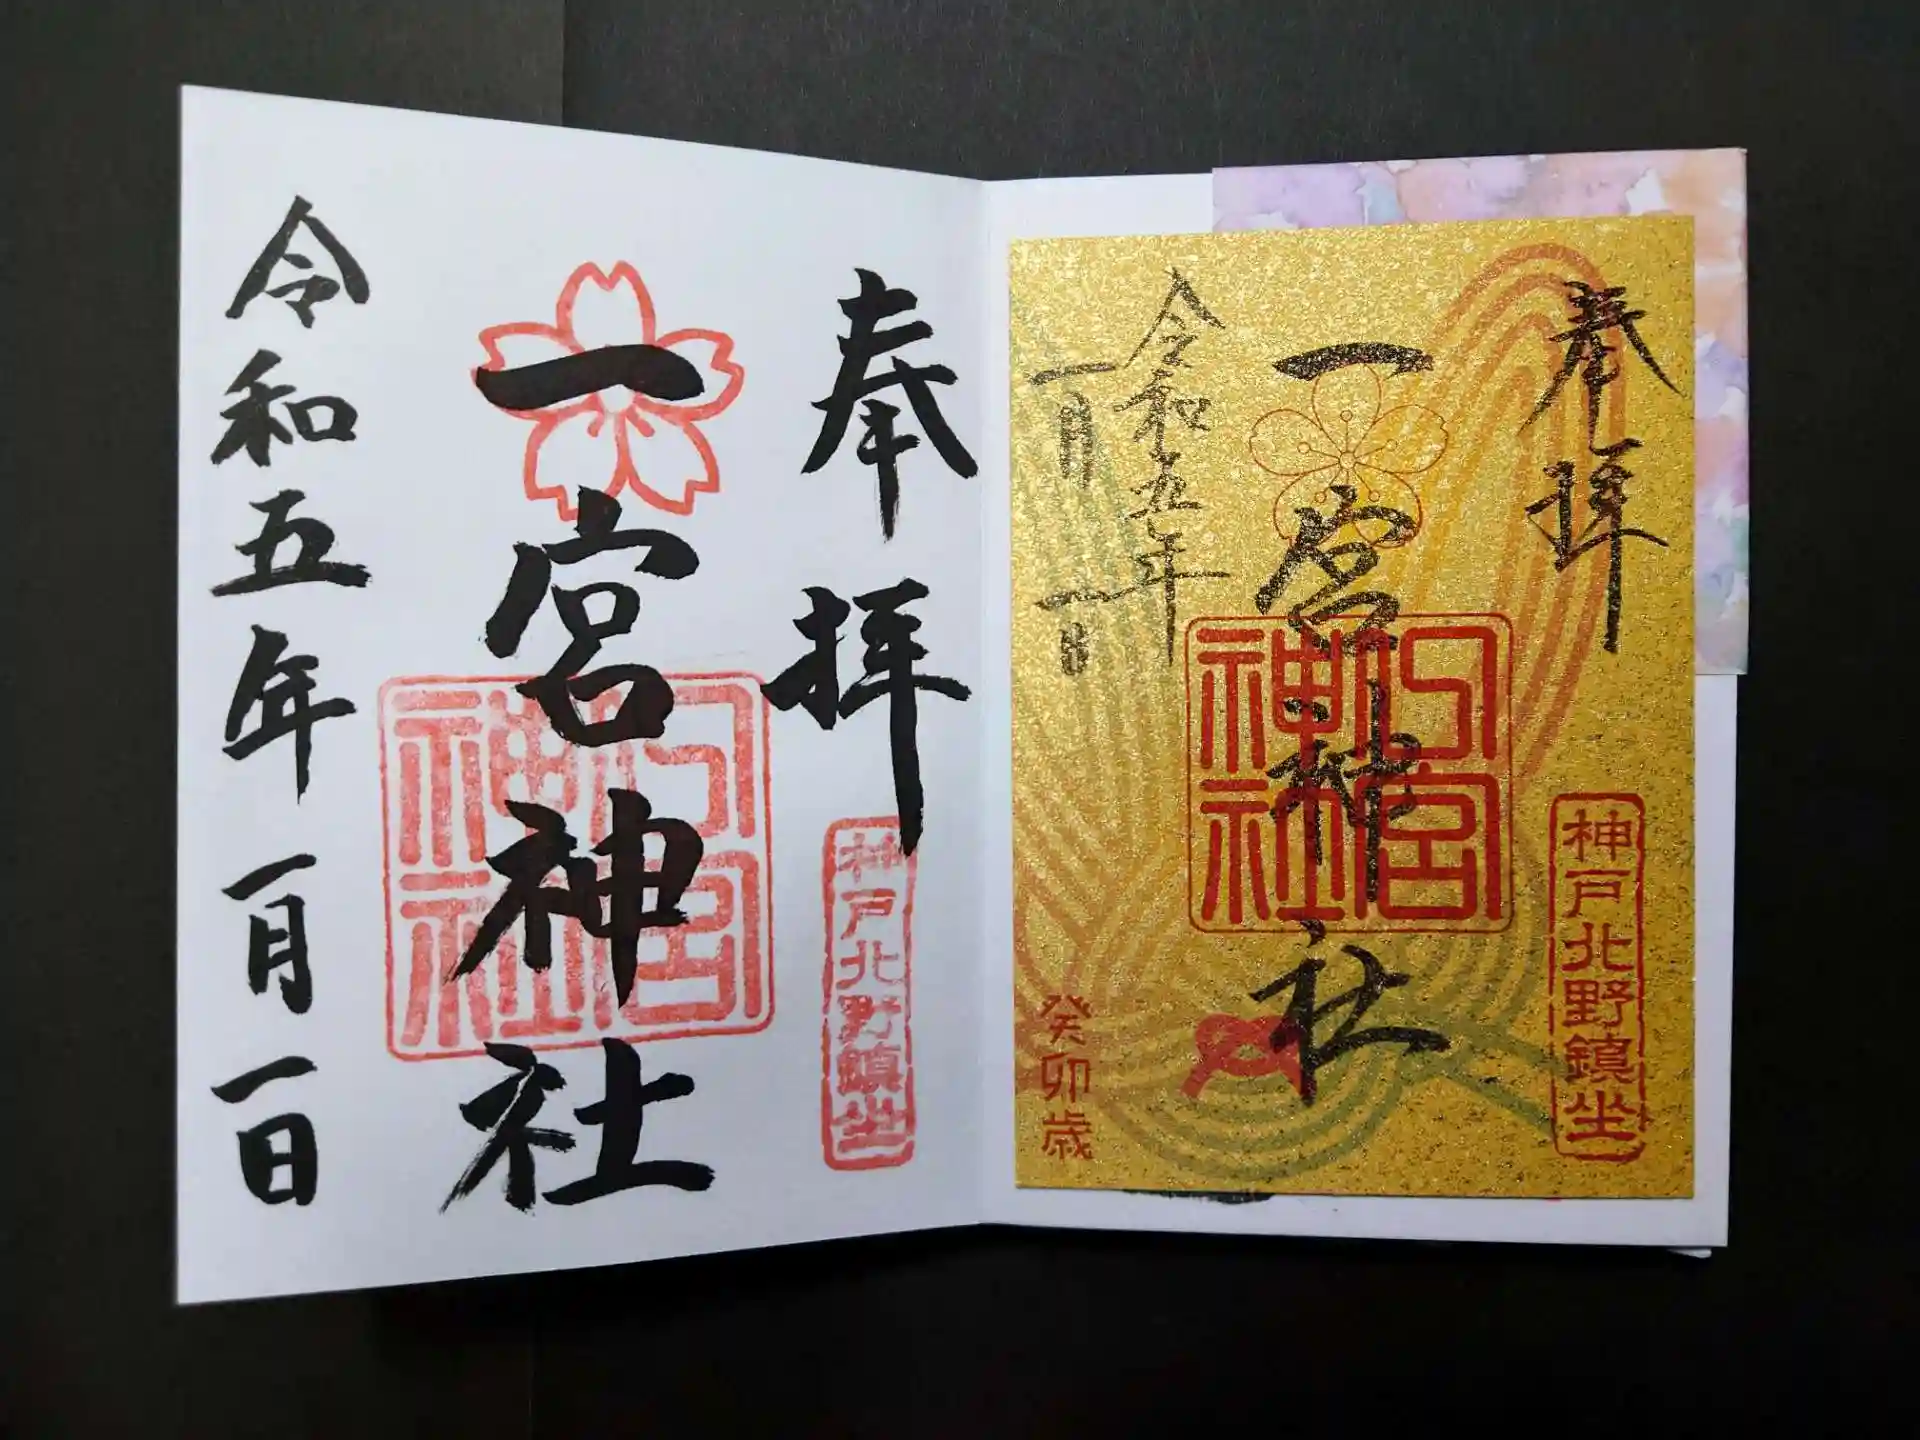 奉拝
神戸北野鎮坐
一宮神社
一宮神社
令和五年一月一日
奉拝
神戸北野鎮坐
一宮神社
一宮神社
令和五年
一月一日
癸卯歳